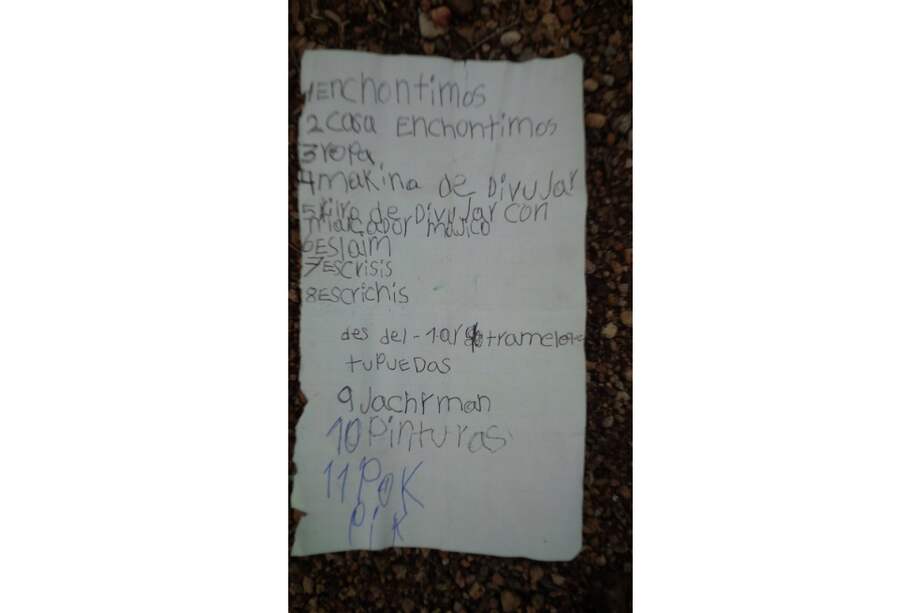 1Enchontimos
2 casa Enchontimos
3 ropa
4 makina de Divujar
5 de Divujar con
marcador majico
6 Eslaim
7 Escrisis
8 Escrichis
des del -1 ar tramelo
tu PUEDas
9 Jachrman
10 Pinturas
11 Pok
Pik